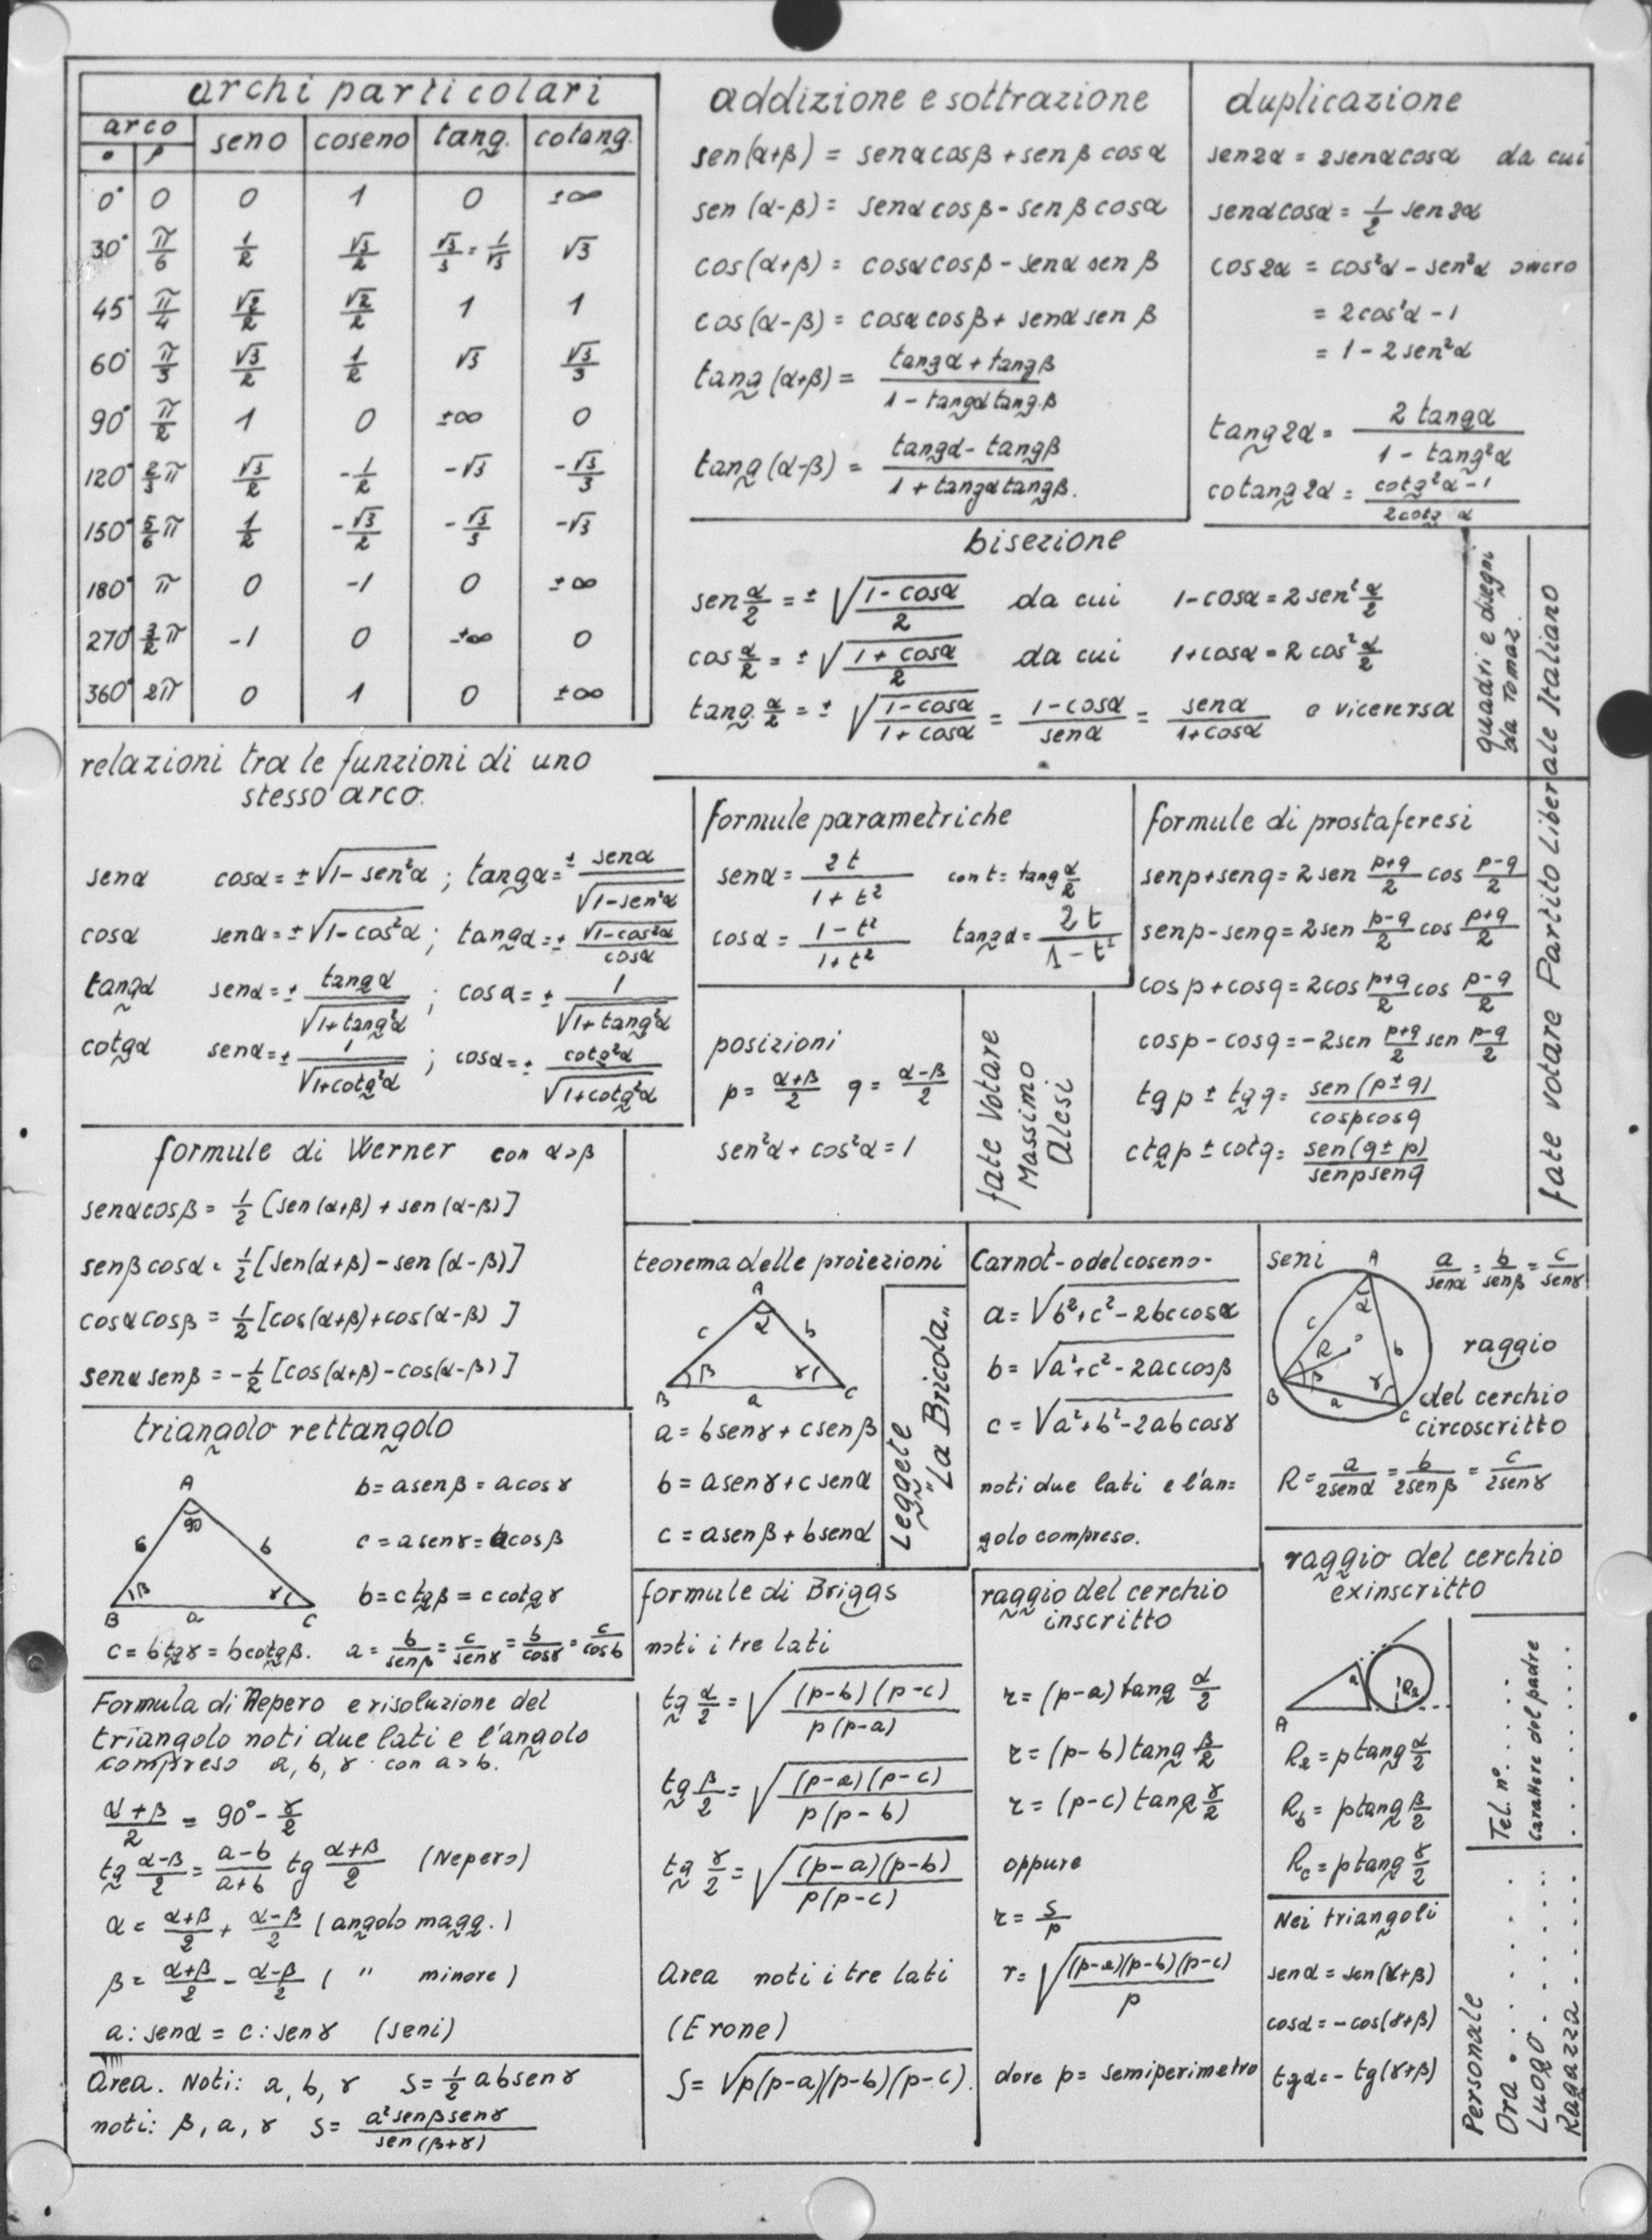 archi particolari
arco seno coseno tang. cotang.
° ρ
0° 0 0 1 0 ±∞
30° π/6 1/2 √3/2 √3/3 = 1/√3 √3
45° π/4 √2/2 √2/2 1 1
60° π/3 √3/2 1/2 √3 √3/3
90° π/2 1 0 ±∞ 0
120° 2/3 π √3/2 -1/2 -√3 -√3/3
150° 5/6 π 1/2 -√3/2 -√3/3 -√3
180° π 0 -1 0 ±∞
270° 3/2 π -1 0 ±∞ 0
360° 2π 0 1 0 ±∞
addizione e sottrazione
sen(α+β) = senα cosβ + sen β cos α
sen (α-β) = senα cos β - sen β cosα
cos (α+β) = cosα cosβ - senα sen β
cos (α-β) = cosα cos β + senα sen β
tang (α+β) = tang α + tang β / 1 - tangα tang. β
tang (α-β) = tangα - tangβ / 1 + tangα tangβ.
duplicazione
sen2α = 2senα cosα da cui
senα cosα = 1/2 sen 2α
cos 2α = cos²α - sen²α ovvero
= 2cos²α - 1
= 1 - 2 sen²α
tang 2α = 2 tangα / 1 - tang²α
cotang 2α = cotg²α - 1 / 2cotg α
bisezione
sen α/2 = ± √1 - cosα / 2 da cui 1 - cosα = 2 sen² α/2
cos α/2 = ± √1 + cosα / 2 da cui 1 + cosα = 2 cos² α/2
tang. α/2 = ± √1 - cosα / 1 + cosα = 1 - cosα / senα = senα / 1+cosα e viceversa
quadri e disegni
da Tomaz.
fate votare Partito Liberale Italiano
relazioni tra le funzioni di uno
stesso arco.
senα cosα = ±√1 - sen²α ; tangα = ± senα / √1-sen²α
cosα senα = ±√1 - cos²α ; tangα = ± √1-cos²α / cosα
tangα senα = ± tangα / √1+tang²α ; cosα = ± 1 / √1+ tang²α
cotgα senα = ± 1 / √1+cotg²α ; cosα = ± cotg²α / √1+cotg²α
formule parametriche
senα = 2t / 1 + t² con t = tang α/2
cosα = 1 - t² / 1+t² tangα = 2t / 1-t²
posizioni
p = α+β/2 q = α-β/2
sen²α + cos²α = 1
fate Votare
Massimo
Alesi
formule di prostaferesi
senp+senq = 2 sen p+q/2 cos p-q/2
senp-senq = 2sen p-q/2 cos p+q/2
cos p+cosq = 2cos p+q/2 cos p-q/2
cosp - cosq = -2sen p+q/2 sen p-q/2
tg p ± tg q = sen (p±q) / cospcosq
ctg p ± cotq = sen (q±p) / senpsenq
formule di Werner con α>β
senαcosβ = 1/2 [sen (α+β) + sen (α-β)]
senβcosα = 1/2 [sen(α+β) - sen (α-β)]
cosαcosβ = 1/2 [cos(α+β)+cos(α-β)]
senαsenβ = -1/2 [cos(α+β)-cos(α-β)]
teorema delle proiezioni
A
α
c b
β γ
B a C
a = bsenγ + csenβ
b = asenγ + c senα
c = asenβ + bsenα
Leggete
"La Bricola"
Carnot - o del coseno -
a = √b²+c²-2bccosα
b = √a²+c²-2accosβ
c = √a²+b²-2abcosγ
noti due lati e l'an=
golo compreso.
seni
a/senα = b/senβ = c/senγ
A
α
c R b
β γ
B a C
raggio
del cerchio
circoscritto
R = a/2senα = b/2senβ = c/2senγ
triangolo rettangolo
A
90
c b
β γ
B a C
b = asenβ = acosγ
c = asenγ = acosβ
b = ctgβ = ccotgγ
c = btgγ = bcotgβ. a = b/senβ = c/senγ = b/cosγ = c/cosb
formule di Briggs
noti i tre lati
tg α/2 = √(p-b)(p-c) / p(p-a)
tg β/2 = √(p-a)(p-c) / p(p-b)
tg γ/2 = √(p-a)(p-b) / p(p-c)
Area noti i tre lati
(Erone)
S = √p(p-a)(p-b)(p-c).
raggio del cerchio
inscritto
r = (p-a) tang α/2
r = (p-b) tang β/2
r = (p-c) tang γ/2
oppure
r = S/p
r = √(p-a)(p-b)(p-c) / p
dove p = semiperimetro
raggio del cerchio
exinscritto
a Ra
A
Ra = ptang α/2
Rb = ptang β/2
Rc = ptang γ/2
Nei triangoli
senα = sen(γ+β)
cosα = -cos(γ+β)
tgα = -tg(γ+β)
Tel. n°. . . . . .
carattere del padre
Personale
Ora . . . . .
Luogo . . . . .
Ragazza . . . . .
Formula di Nepero e risoluzione del
triangolo noti due lati e l'angolo
compreso a, b, γ con a>b.
α+β/2 = 90° - γ/2
tg α-β/2 = a-b/a+b tg α+β/2 (Nepero)
α = α+β/2 + α-β/2 (angolo magg.)
β = α+β/2 - α-β/2 ( " minore)
a : senα = c : senγ (seni)
Area. Noti: a, b, γ S = 1/2 absenγ
noti: β, a, γ S = a²senβsenγ / sen (β+γ)